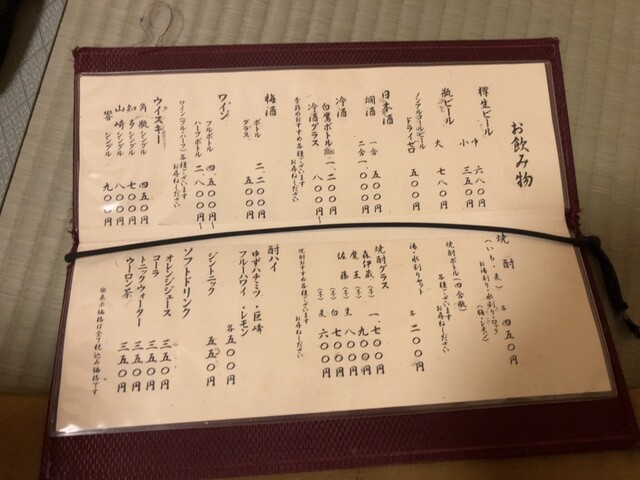 お飲み物
樽生ビール 中 六八〇円
小 三五〇円
瓶ビール 大 七八〇円
ノンアルコールビール
ドライゼロ 五〇〇円
日本酒
燗酒 一合 五〇〇円
二合 一、〇〇〇円
冷酒
白鷹ボトル 一、二〇〇円〜
冷酒グラス 八〇〇円〜
季節のおすすめ各種ございます
お尋ねください
梅酒 ボトル 二、二〇〇円
グラス 五〇〇円
ワイン フルボトル 四、五〇〇円〜
ハーフボトル 二、八〇〇円〜
ワイン(フル・ハーフ)各種ございます
お尋ねください
ウイスキー
角瓶シングル 四五〇円
知多シングル 七〇〇円
山崎シングル 八〇〇円
響 シングル 九〇〇円
焼酎
(いも・麦) 各 四五〇円
お湯割り・水割り・ロック
(梅・レモン)
湯・水割りセット 各 二〇〇円
焼酎ボトル(四合瓶)
各種ございます
お尋ねください
焼酎グラス
森伊蔵(芋) 一、七〇〇円
魔王(芋) 九〇〇円
佐藤(芋) 黒 八〇〇円
(芋) 白 七〇〇円
麦 六〇〇円
焼酎おすすめ各種ございます
お尋ねください
酎ハイ
ゆずハチミツ・巨峰
フルーハワイ・レモン 各五〇〇円
ジントニック 五五〇円
ソフトドリンク
オレンジジュース 三五〇円
コーラ 三五〇円
トニックウォーター 三五〇円
ウーロン茶 三五〇円
※表示価格は全て税込み価格です